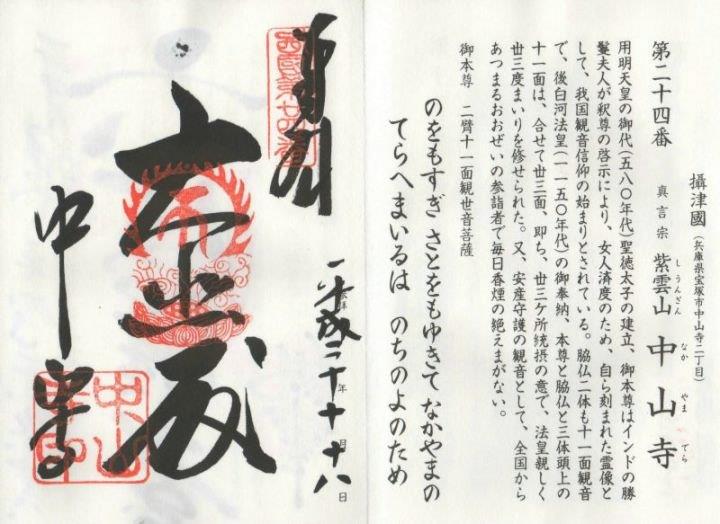 攝津國(兵庫県宝塚市中山寺二丁目)
第二十四番 真言宗 紫雲山 中山寺
しうんざん なか やま でら
用明天皇の御代(五八〇年代)聖徳太子の建立、御本尊はインドの勝
鬘夫人が釈尊の啓示により、女人済度のため、自ら刻まれた霊像と
して、我国観音信仰の始まりとされている。脇仏二体も十一面観音
で、後白河法皇(一一五〇年代)の御奉納、本尊と脇仏と三体頭上の
十一面は、合せて丗三面、即ち、丗三ケ所統摂の意で、法皇親しく
丗三度まいりを修せられた。又、安産守護の観音として、全国から
あつまるおおぜいの参詣者で毎日香煙の絶えまがない。
御本尊 二臂十一面観世音菩薩
のをもすぎ さとをもゆきて なかやまの
てらへまいるは のちのよのため
奉拝
平成二十年十月十八日
中山寺